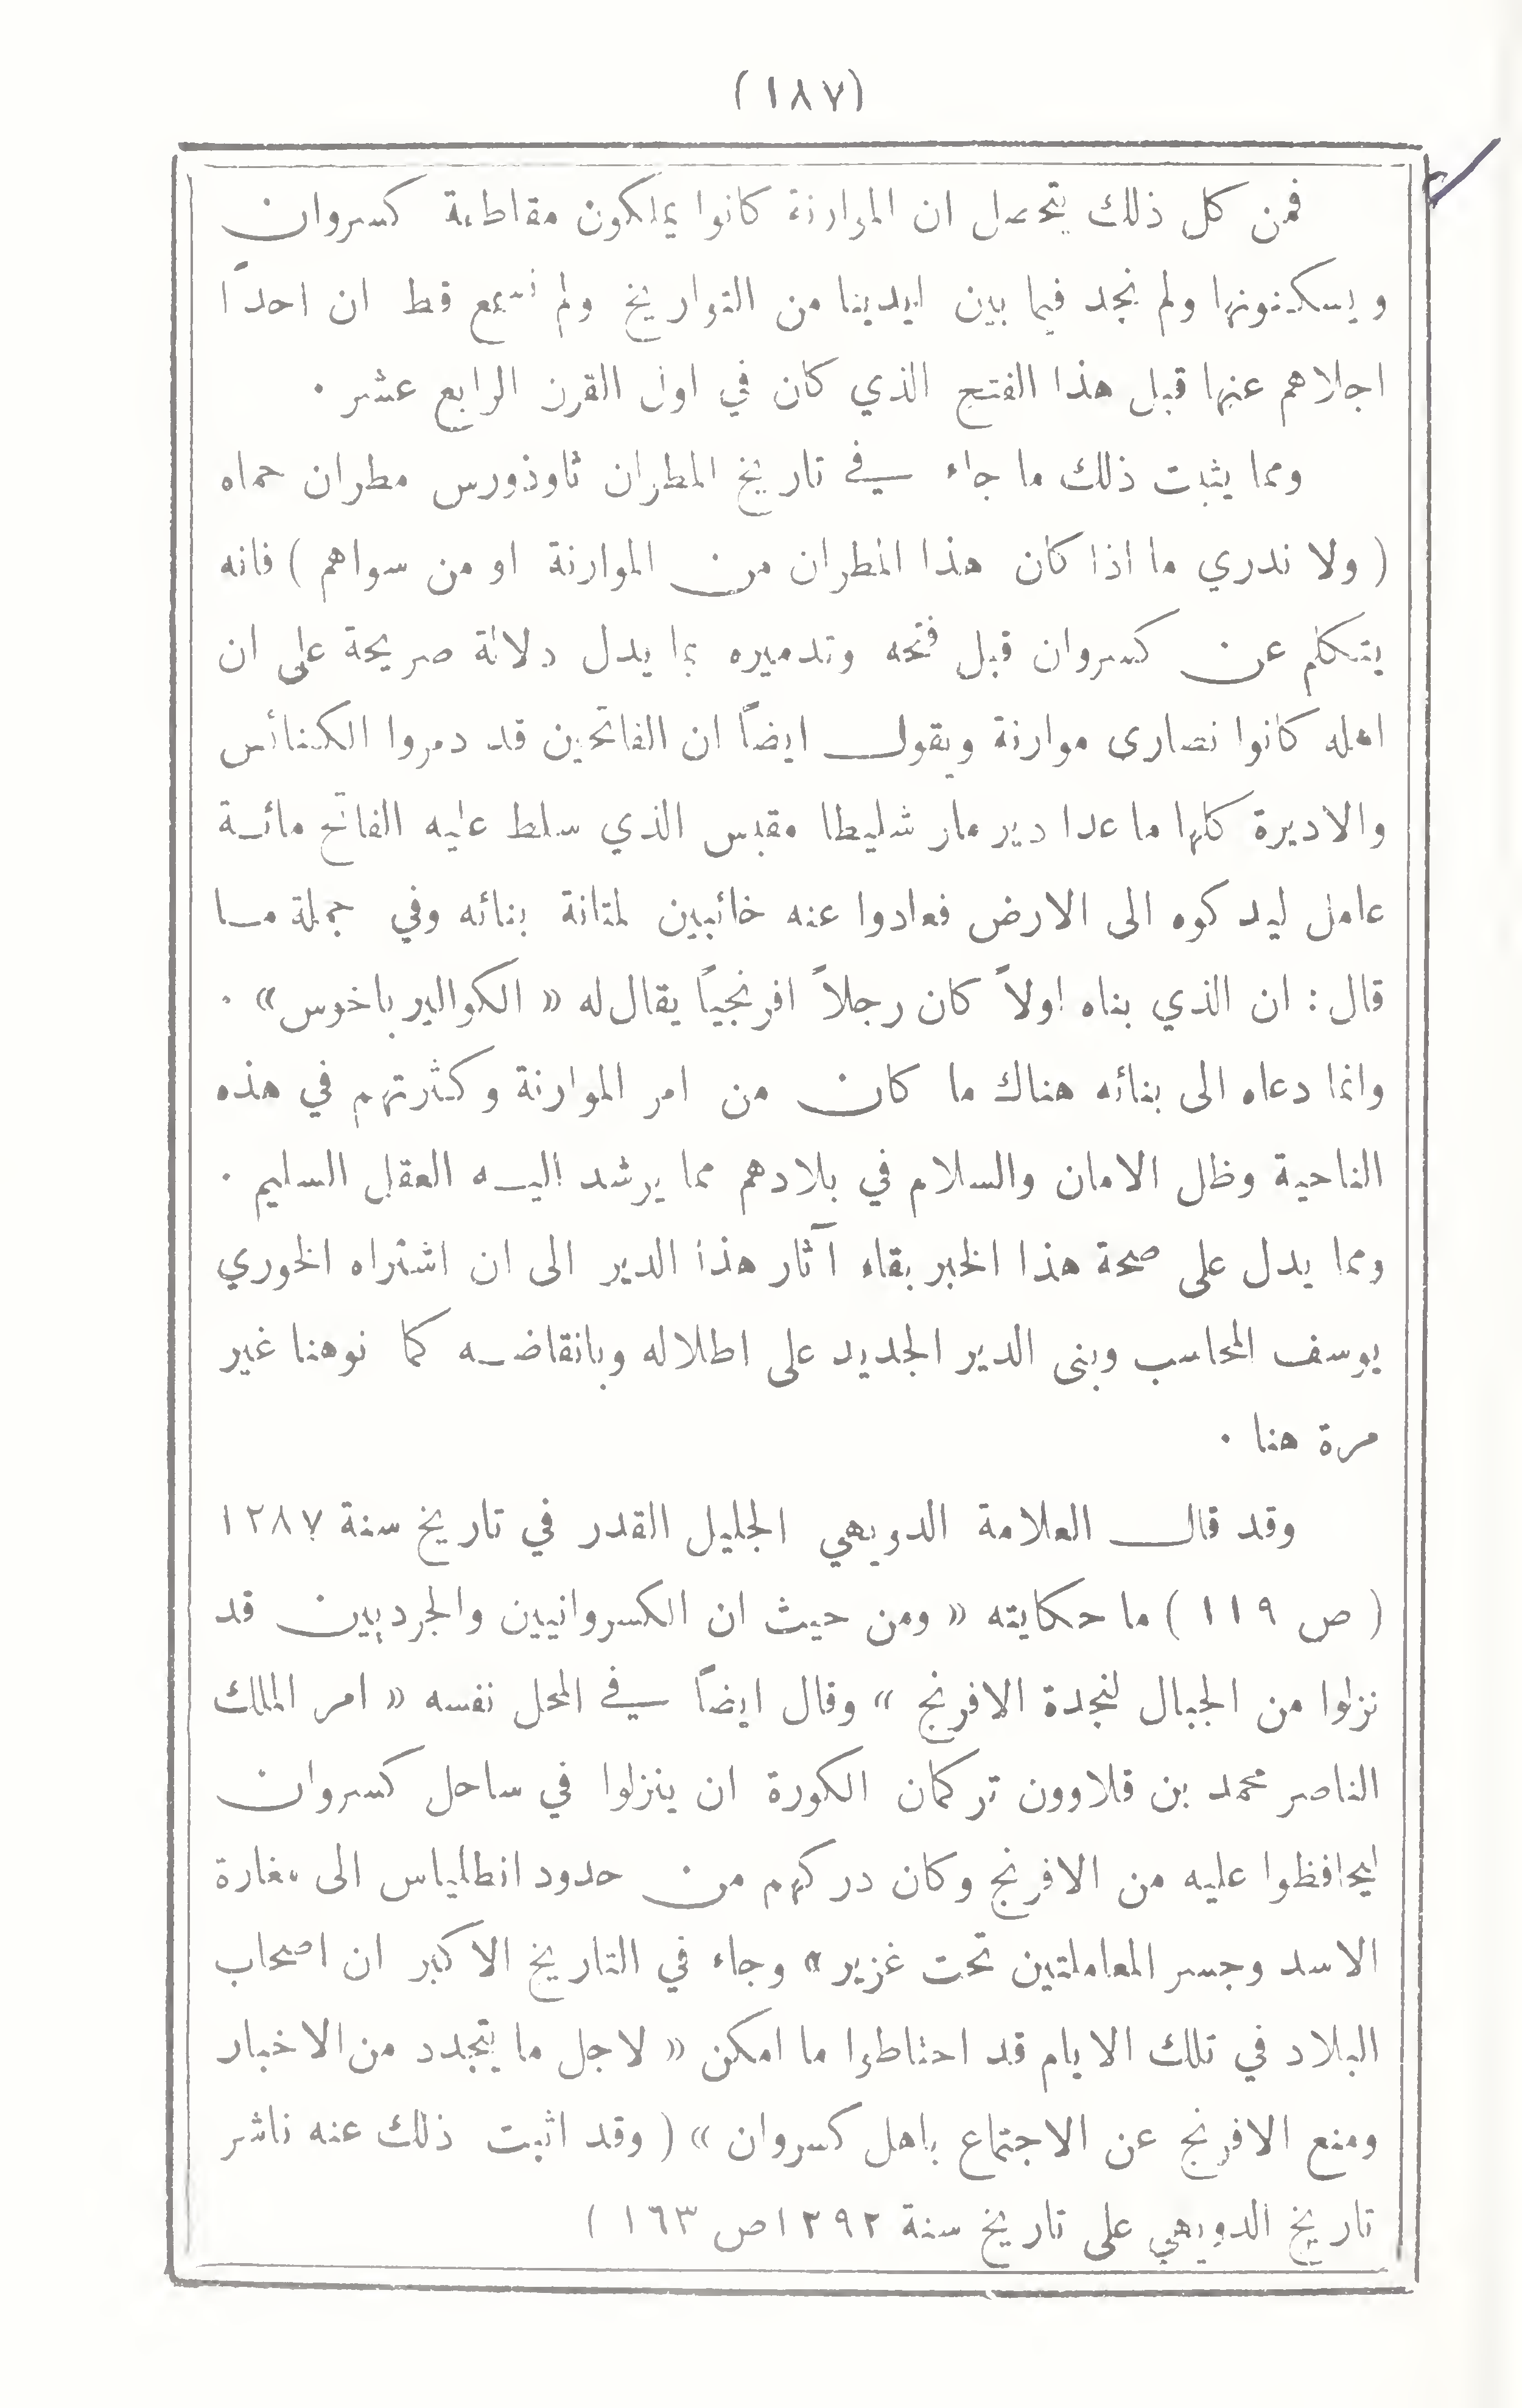 (١٨٧)
فمن كل ذلك يتحصل ان الموارنة كانوا يملكون مقاطعة كسروان
ويسكنونها ولم نجد فيما بين ايدينا من التواريخ ولم نسمع قط ان احداً
اجلاهم عنها قبل هذا الفتح الذي كان في اول القرن الرابع عشر .
ومما يثبت ذلك ما جاء في تاريخ المطران ثاوذورس مطران حماه
( ولا ندري ما اذا كان هذا المطران من الموارنة او من سواهم ) فانه
يتكلم عن كسروان قبل فتحه وتدميره بما يدل دلالة صريحة على ان
اهله كانوا نصارى موارنة ويقول ايضاً ان الفاتحين قد دمروا الكنائس
والاديرة كلها ما عدا دير مار شليطا مقبس الذي سلط عليه الفاتح مائة
عامل ليدكوه الى الارض فعادوا عنه خائبين لمتانة بنائه وفي جملة ما
قال : ان الذي بناه اولاً كان رجلاً افرنجياً يقال له « الكوالير باخوس » .
وانما دعاه الى بنائه هناك ما كان من امر الموارنة وكثرتهم في هذه
الناحية وظل الامان والسلام في بلادهم مما يرشد اليه العقل السليم .
ومما يدل على صحة هذا الخبر بقاء آثار هذا الدير الى ان اشتراه الخوري
يوسف المحاسب وبنى الدير الجديد على اطلاله وبانقاضه كما نوهنا غير
مرة هنا .
وقد قال العلامة الدويهي الجليل القدر في تاريخ سنة ١٢٨٧
( ص ١١٩ ) ما حكايته « ومن حيث ان الكسروانيين والجرديين قد
نزلوا من الجبال لنجدة الافرنج » وقال ايضاً في المحل نفسه « امر الملك
الناصر محمد بن قلاوون تركمان الكورة ان ينزلوا في ساحل كسروان
ليحافظوا عليه من الافرنج وكان دركهم من حدود انطلياس الى مغارة
الاسد وجسر المعاملتين تحت غزير » وجاء في التاريخ الاكبر ان اصحاب
البلاد في تلك الايام قد احتاطوا ما امكن « لاجل ما يتجدد من الاخبار
ومنع الافرنج عن الاجتماع باهل كسروان » ( وقد اثبت ذلك عنه ناشر
تاريخ الدويهي على تاريخ سنة ١٢٩٢ ص ١٦٣ )